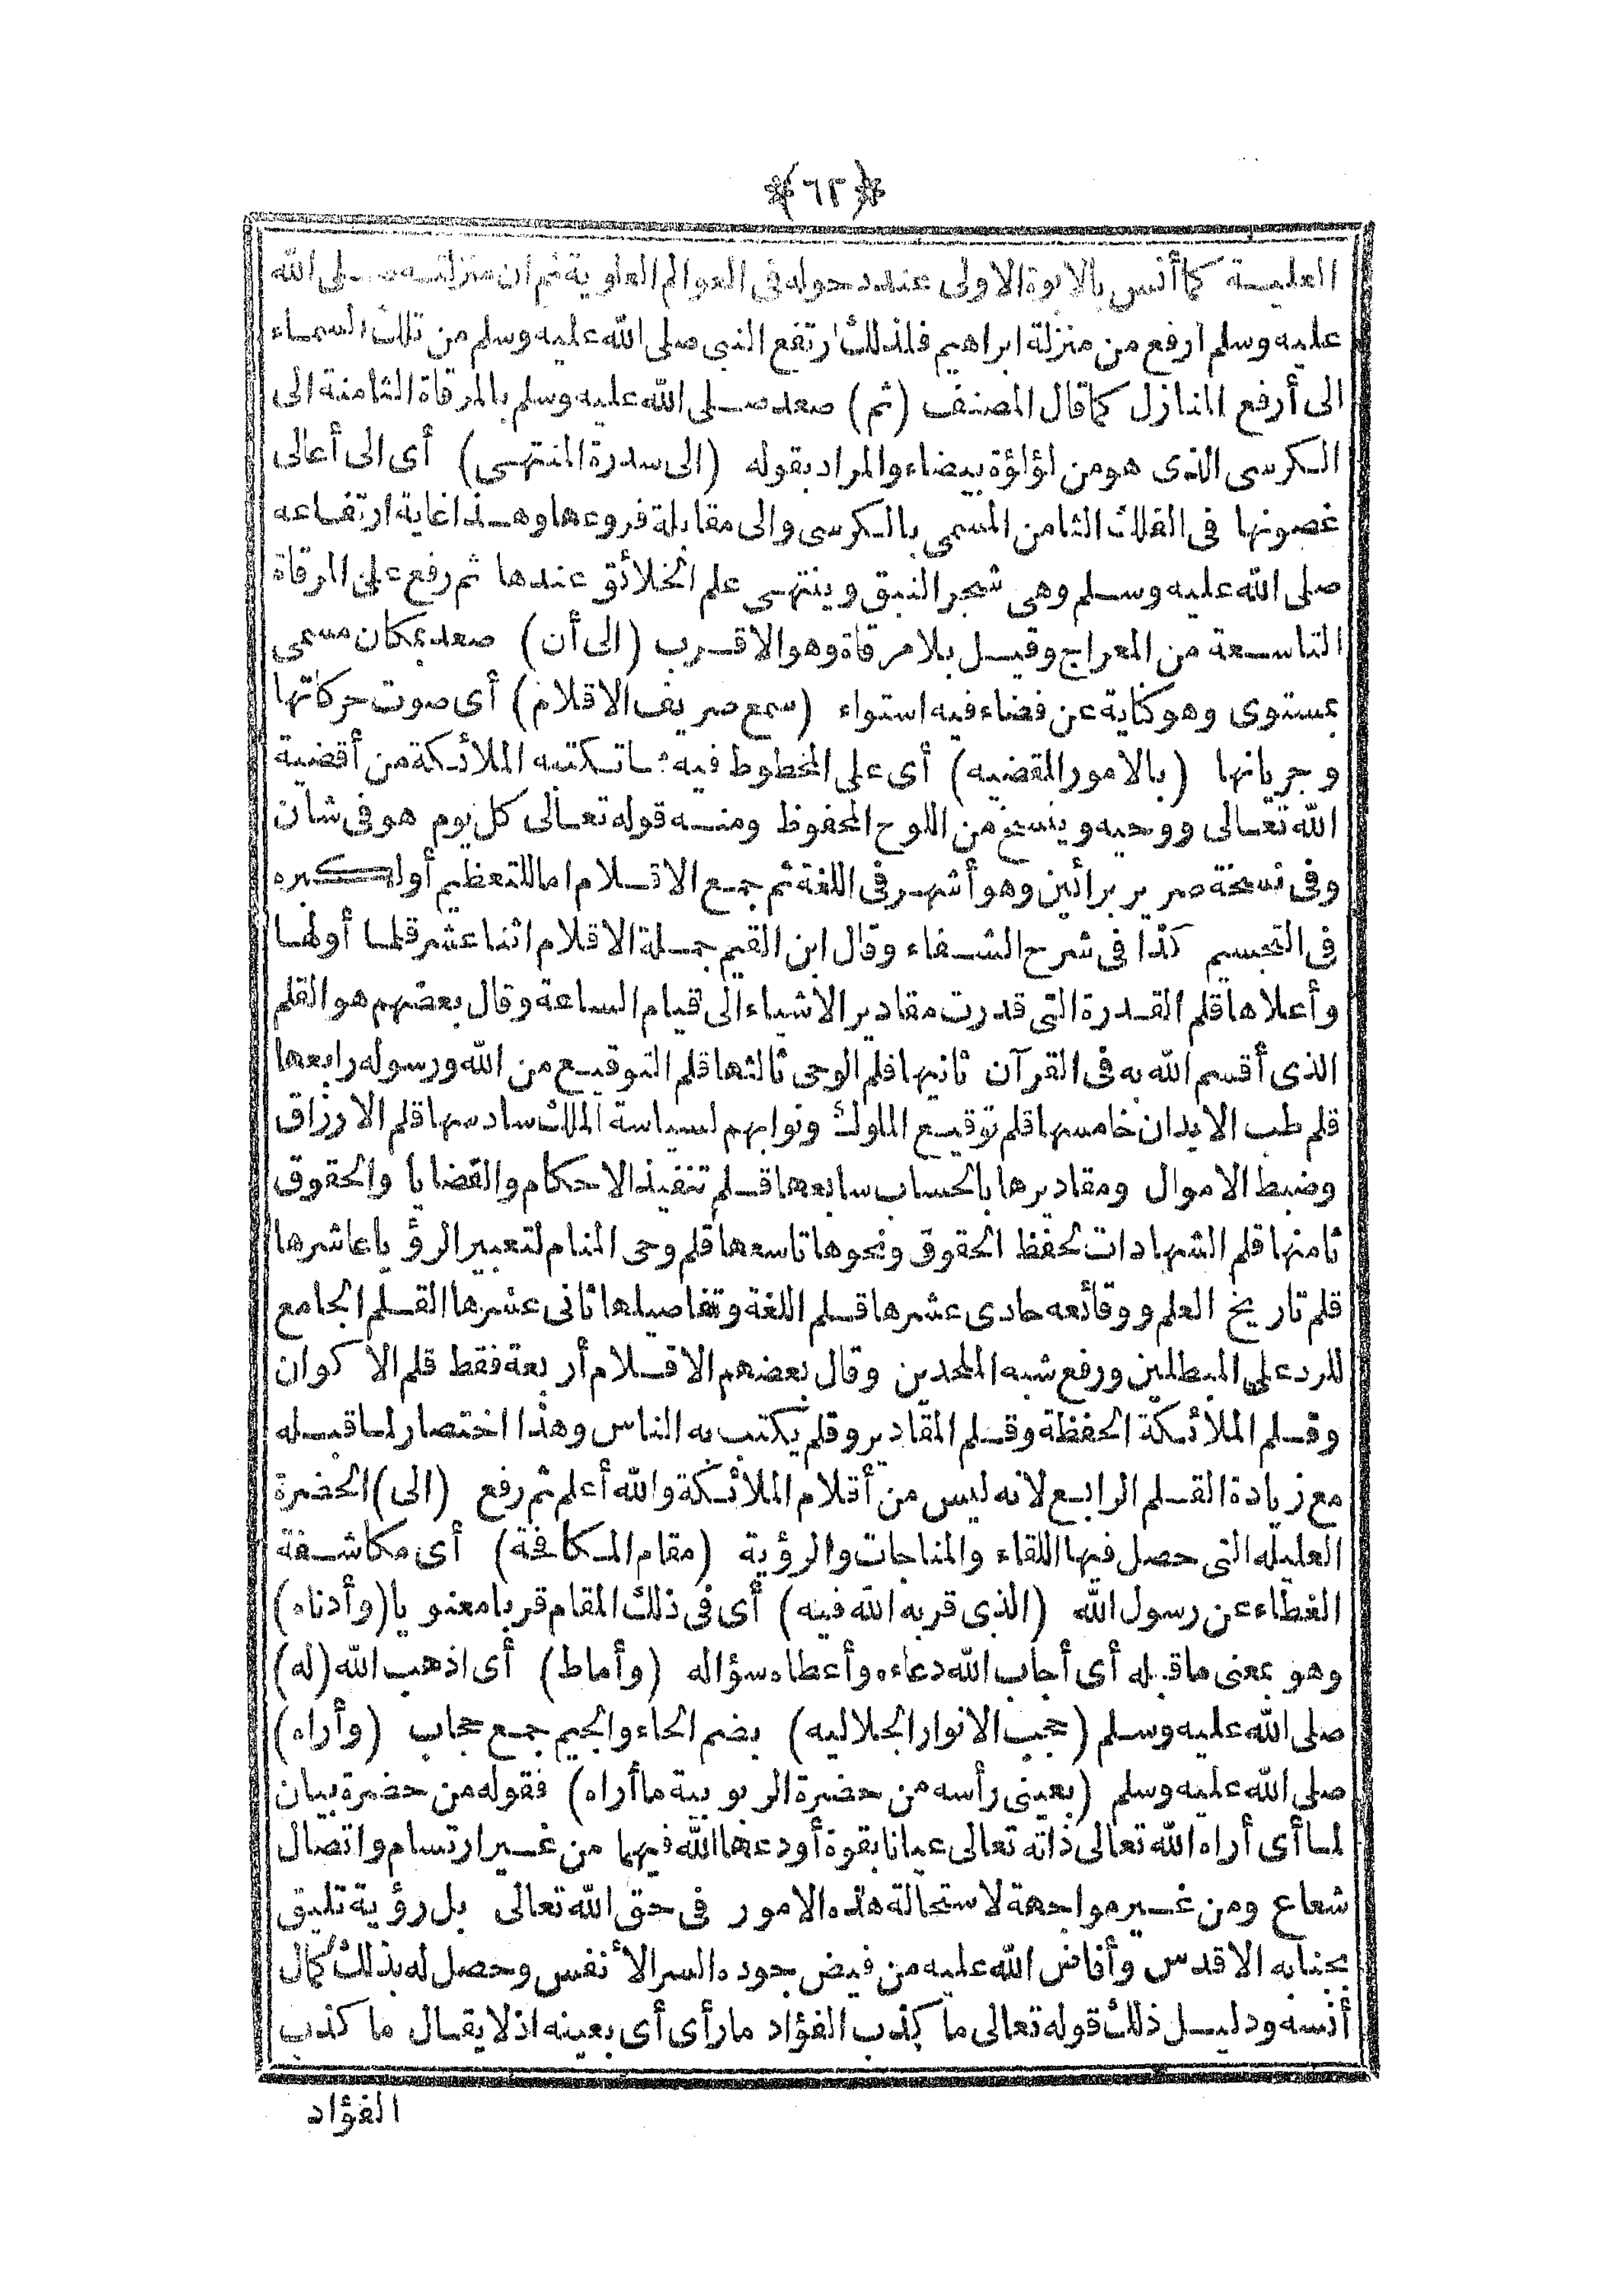 ﴿٦٢﴾
العلية كما أنس بالابوة الاولى عند دخوله فى العوالم العلوية ثم ان منزلته صلى الله
عليه وسلم ارفع من منزلة ابراهيم فلذلك ارتفع النبى صلى الله عليه وسلم من تلك السماء
الى أرفع المنازل كما قال المصنف (ثم) صعد صلى الله عليه وسلم بالمرقاة الثامنة الى
الكرسى الذى هو من لؤلؤة بيضاء والمراد بقوله (الى سدرة المنتهى) أى الى أعالى
غصونها فى الفلك الثامن المسمى بالكرسى والى مقابلة فروعها وهذا غاية ارتفاعه
صلى الله عليه وسلم وهى شجر النبق وينتهى علم الخلائق عندها ثم رفع على المرقاة
التاسعة من المعراج وقيل بلا مرقاة وهو الاقرب (الى أن) صعد بمكان مسمى
بمستوى وهو كناية عن فضاء فيه استواء (سمع صريف الاقلام) أى صوت حركاتها
وجريانها (بالامور المقضيه) أى على المخطوط فيه ما تكتبه الملائكة من أقضية
الله تعالى ووحيه وينسخ من اللوح المحفوظ ومنه قوله تعالى كل يوم هو فى شأن
وفى نسخة صرير برائين وهو أشهر فى اللغة ثم جمع الاقلام اما للتعظيم أو لكبره
فى التجسيم كذا فى شرح الشفاء وقال ابن القيم جملة الاقلام اثنا عشر قلما أولها
وأعلاها قلم القدرة التى قدرت مقادير الاشياء الى قيام الساعة وقال بعضهم هو القلم
الذى أقسم الله به فى القرآن ثانيها قلم الوحى ثالثها قلم التوقيع من الله ورسوله رابعها
قلم طب الابدان خامسها قلم توقيع الملوك ونوابهم لسياسة الملك سادسها قلم الارزاق
وضبط الاموال ومقاديرها بالحساب سابعها قلم تنفيذ الاحكام والقضايا والحقوق
ثامنها قلم الشهادات لحفظ الحقوق ونحوها تاسعها قلم وحى المنام لتعبير الرؤيا عاشرها
قلم تاريخ العلم ووقائعه حادى عشرها قلم اللغة وتفاصيلها ثانى عشرها القلم الجامع
للرد على المبطلين ورفع شبه الملحدين وقال بعضهم الاقلام أربعة فقط قلم الاكوان
وقلم الملائكة الحفظة وقلم المقادير وقلم يكتب به الناس وهذا اختصار لما قبله
مع زيادة القلم الرابع لانه ليس من أقلام الملائكة والله أعلم ثم رفع (الى) الحضرة
العليله التى حصل فيها اللقاء والمناجات والرؤية (مقام المكافحة) أى مكاشفة
الغطاء عن رسول الله (الذى قربه الله فيه) أى فى ذلك المقام قربا معنويا (وأدناه)
وهو بمعنى ما قبله أى أجاب الله دعاءه وأعطاه سؤاله (وأماط) أى اذهب الله (له)
صلى الله عليه وسلم (حجب الانوار الجلاليه) بضم الحاء والجيم جمع حجاب (وأراه)
صلى الله عليه وسلم (بعينى رأسه من حضرة الربوبية ما أراه) فقوله من حضرة بيان
لما أى أراه الله تعالى ذاته تعالى عيانا بقوة أودعها الله فيهما من غير ارتسام واتصال
شعاع ومن غير مواجهة لاستحالة هذه الامور فى حق الله تعالى بل رؤية تليق
بجنابه الاقدس وأفاض الله عليه من فيض جوده السر الأنفس وحصل له بذلك كمال
أنسه ودليل ذلك قوله تعالى ما كذب الفؤاد ما رأى أى بعينه اذ لا يقال ما كذب
الفؤاد